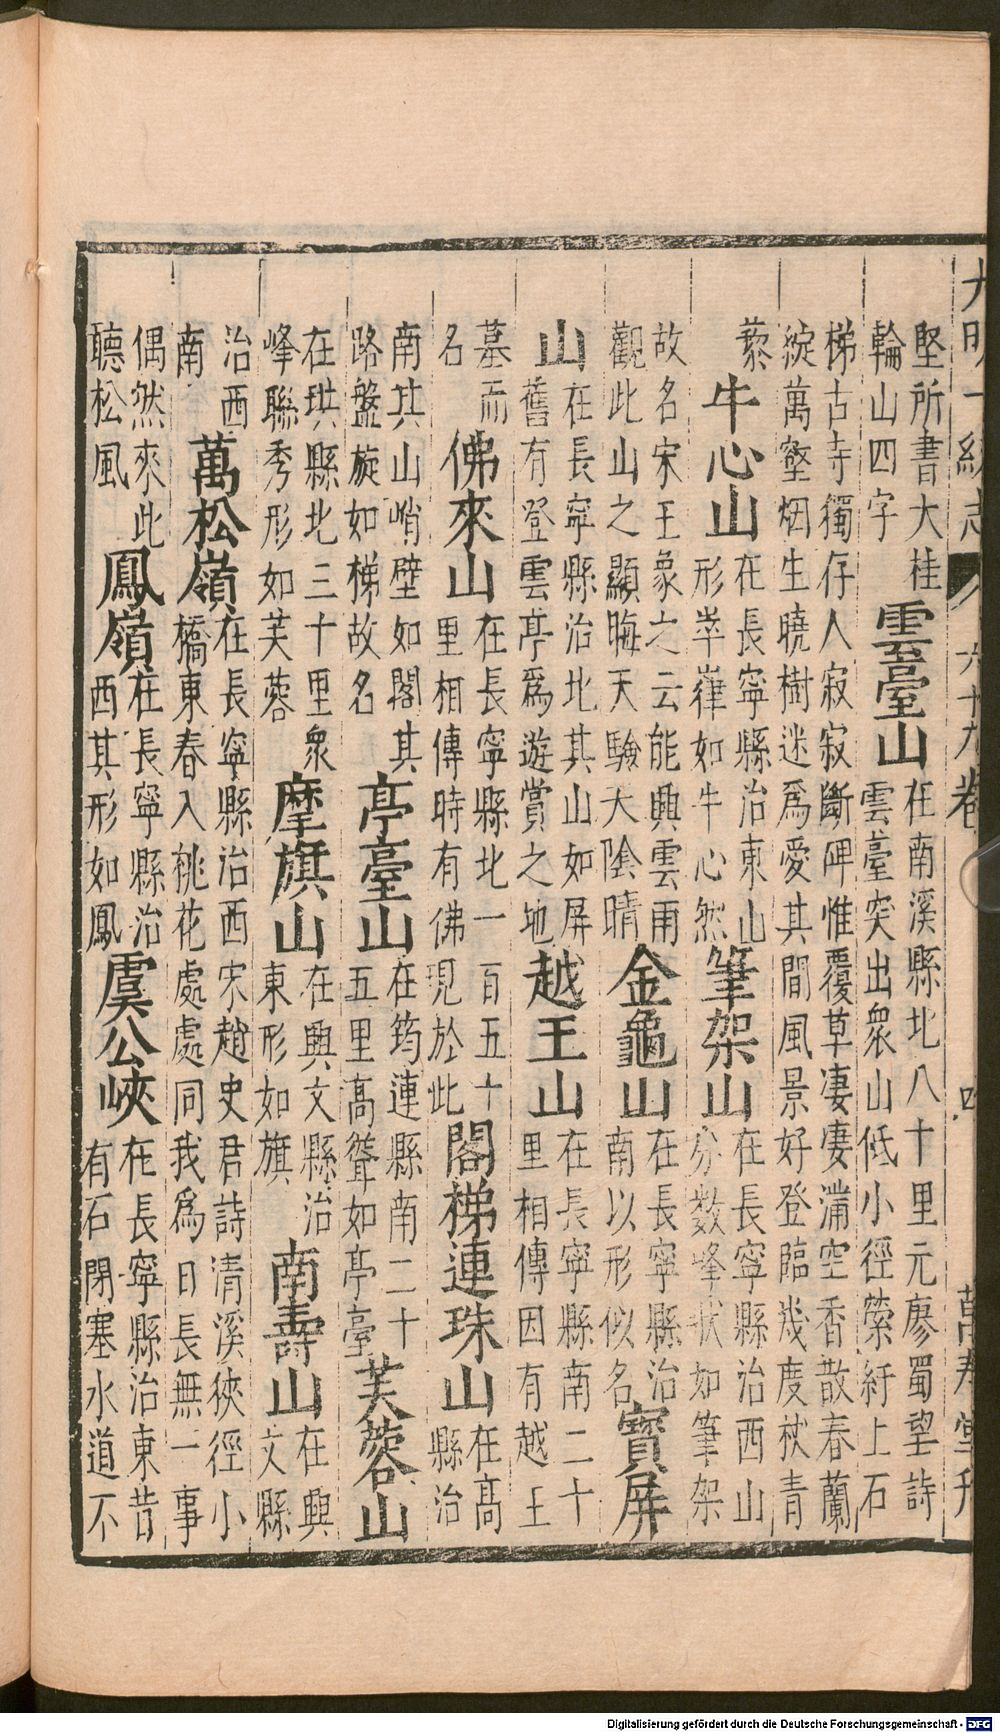 大明一統志 六十九卷 四 萬壽堂刊
堅所書大桂
輪山四字
雲臺山
在南溪縣北八十里元廖蜀望詩
雲臺突出衆山低小徑縈紆上石
梯古寺獨存人寂寂斷碑惟覆草凄凄滿空香散春蘭
綻萬壑烟生曉樹迷爲愛其間風景好登臨幾度杖青
藜
牛心山
在長寧縣治東山
形崒嵂如牛心然
筆架山
在長寧縣治西山
分数峰狀如筆架
故名宋王象之云能興雲雨
觀此山之顯晦天驗大陰晴
金龜山
在長寧縣治
南以形似名
寶屏
山
在長寧縣治北其山如屏
舊有登雲亭爲遊賞之地
越王山
在長寧縣南二十
里相傳因有越王
墓而
名
佛來山
在長寧縣北一百五十
里相傳時有佛現於此
閣梯連珠山
在高
縣治
南其山峭壁如閣其
路盤旋如梯故名
亭臺山
在筠連縣南二十
五里高聳如亭臺
芙蓉山
在珙縣北三十里衆
峰聯秀形如芙蓉
摩旗山
在興文縣治
東形如旗
南壽山
在興
文縣
治西
南
萬松嶺
在長寧縣治西宋趙史君詩清溪狹徑小
橋東春入桃花處處同我爲日長無一事
偶然來此
聽松風
鳳嶺
在長寧縣治
西其形如鳳
虞公峽
在長寧縣治東昔
有石閉塞水道不
Digitalisierung gefördert durch die Deutsche Forschungsgemeinschaft - DFG